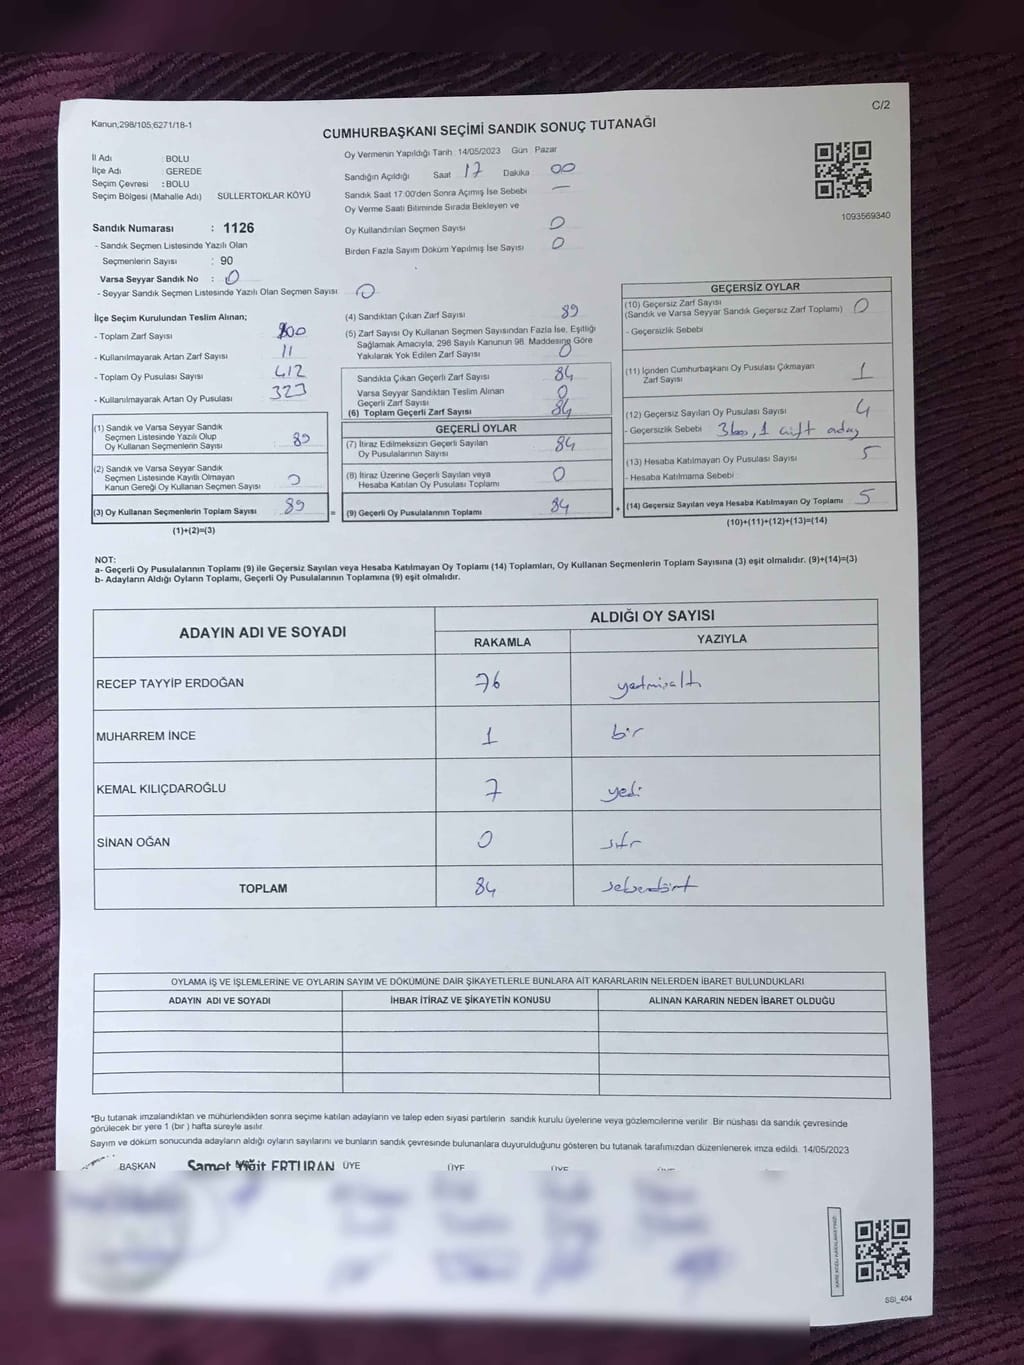 C/2
Kanun;298/105;6271/18-1
CUMHURBAŞKANI SEÇİMİ SANDIK SONUÇ TUTANAĞI
İl Adı : BOLU
İlçe Adı : GEREDE
Seçim Çevresi : BOLU
Seçim Bölgesi (Mahalle Adı) SÜLLERTOKLAR KÖYÜ
Oy Vermenin Yapıldığı Tarih 14/05/2023 Gün Pazar
Sandığın Açıldığı Saat 17 Dakika 00
Sandık Saat 17:00'den Sonra Açılmış İse Sebebi —
Oy Verme Saati Bitiminde Sırada Bekleyen ve
Oy Kullandırılan Seçmen Sayısı 0
Birden Fazla Sayım Döküm Yapılmış İse Sayısı 0
1093569340
Sandık Numarası : 1126
- Sandık Seçmen Listesinde Yazılı Olan
Seçmenlerin Sayısı : 90
Varsa Seyyar Sandık No : 0
- Seyyar Sandık Seçmen Listesinde Yazılı Olan Seçmen Sayısı 0
İlçe Seçim Kurulundan Teslim Alınan;
- Toplam Zarf Sayısı
- Kullanılmayarak Artan Zarf Sayısı 11
- Toplam Oy Pusulası Sayısı 412
- Kullanılmayarak Artan Oy Pusulası 323
(1) Sandık ve Varsa Seyyar Sandık
Seçmen Listesinde Yazılı Olup
Oy Kullanan Seçmenlerin Sayısı : 89
(2) Sandık ve Varsa Seyyar Sandık
Seçmen Listesinde Kayıtlı Olmayan
Kanun Gereği Oy Kullanan Seçmen Sayısı : 0
(3) Oy Kullanan Seçmenlerin Toplam Sayısı 89
(1)+(2)=(3)
(4) Sandıktan Çıkan Zarf Sayısı 89
(5) Zarf Sayısı Oy Kullanan Seçmen Sayısından Fazla İse, Eşitliği
Sağlamak Amacıyla, 298 Sayılı Kanunun 98. Maddesine Göre
Yakılarak Yok Edilen Zarf Sayısı 0
Sandıkta Çıkan Geçerli Zarf Sayısı 84
Varsa Seyyar Sandıktan Teslim Alınan
Geçerli Zarf Sayısı 0
(6) Toplam Geçerli Zarf Sayısı 84
GEÇERLİ OYLAR
(7) İtiraz Edilmeksizin Geçerli Sayılan
Oy Pusulalarının Sayısı 84
(8) İtiraz Üzerine Geçerli Sayılan veya
Hesaba Katılan Oy Pusulası Toplamı 0
= (9) Geçerli Oy Pusulalarının Toplamı 84
GEÇERSİZ OYLAR
(10) Geçersiz Zarf Sayısı
(Sandık ve Varsa Seyyar Sandık Geçersiz Zarf Toplamı) 0
- Geçersizlik Sebebi
(11) İçinden Cumhurbaşkanı Oy Pusulası Çıkmayan
Zarf Sayısı 1
(12) Geçersiz Sayılan Oy Pusulası Sayısı 4
- Geçersizlik Sebebi 3 boş, 1 çift aday
(13) Hesaba Katılmayan Oy Pusulası Sayısı 5
- Hesaba Katılmama Sebebi
+ (14) Geçersiz Sayılan veya Hesaba Katılmayan Oy Toplamı 5
(10)+(11)+(12)+(13)=(14)
NOT:
a- Geçerli Oy Pusulalarının Toplamı (9) ile Geçersiz Sayılan veya Hesaba Katılmayan Oy Toplamı (14) Toplamları, Oy Kullanan Seçmenlerin Toplam Sayısına (3) eşit olmalıdır. (9)+(14)=(3)
b- Adayların Aldığı Oyların Toplamı, Geçerli Oy Pusulalarının Toplamına (9) eşit olmalıdır.
ADAYIN ADI VE SOYADI ALDIĞI OY SAYISI
RAKAMLA YAZIYLA
RECEP TAYYİP ERDOĞAN 76 yetmişaltı
MUHARREM İNCE 1 bir
KEMAL KILIÇDAROĞLU 7 yedi
SİNAN OĞAN 0 sıfır
TOPLAM 84 seksendört
OYLAMA İŞ VE İŞLEMLERİNE VE OYLARIN SAYIM VE DÖKÜMÜNE DAİR ŞİKAYETLERLE BUNLARA AİT KARARLARIN NELERDEN İBARET BULUNDUKLARI
ADAYIN ADI VE SOYADI İHBAR İTİRAZ VE ŞİKAYETİN KONUSU ALINAN KARARIN NEDEN İBARET OLDUĞU
*Bu tutanak imzalandıktan ve mühürlendikten sonra seçime katılan adayların ve talep eden siyasi partilerin sandık kurulu üyelerine veya gözlemcilerine verilir. Bir nüshası da sandık çevresinde
görülecek bir yere 1 (bir ) hafta süreyle asılır.
Sayım ve döküm sonucunda adayların aldığı oyların sayılarını ve bunların sandık çevresinde bulunanlara duyurulduğunu gösteren bu tutanak tarafımızdan düzenlenerek imza edildi. 14/05/2023
BAŞKAN Samet Yiğit ERTURAN ÜYE ÜYE ÜYE ÜYE
SSI_404